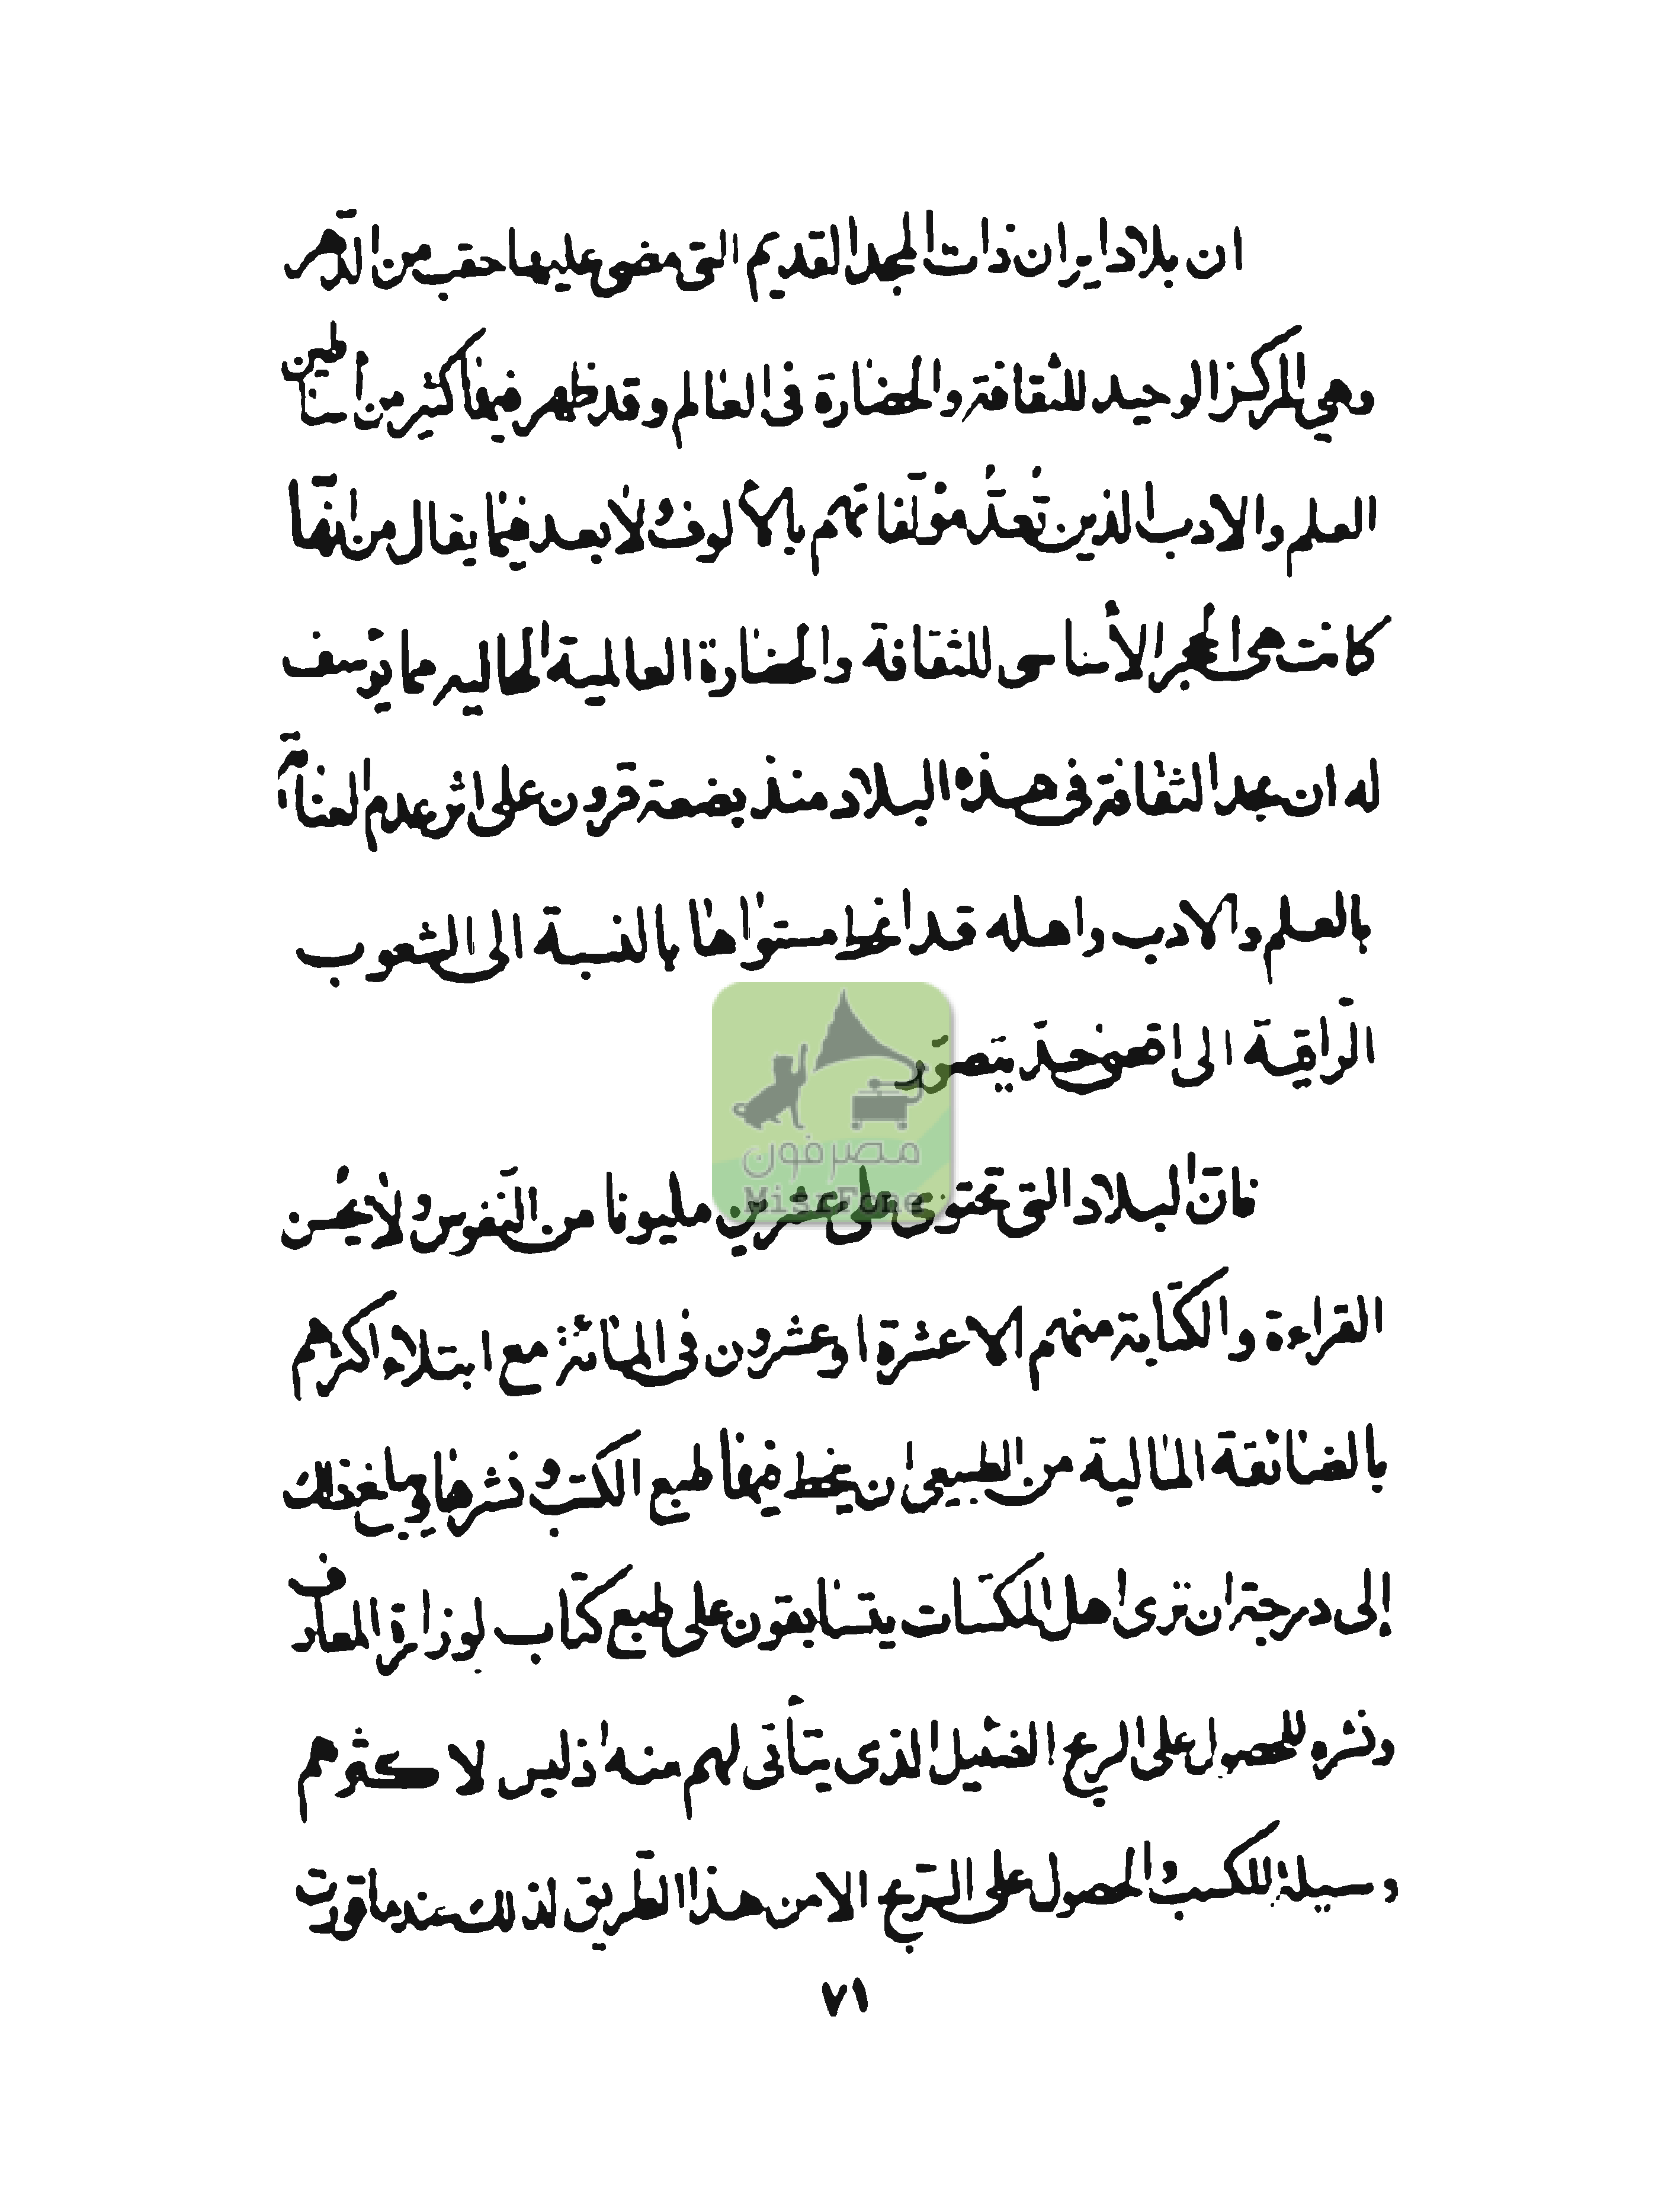 ان بلاد ايران ذات المجد القديم التى مضى عليها حقب من الدّهر
وهي المركز الوحيد للثقافة والحضارة فى العالم وقد ظهر فيها كثير من أساطين
العلم والادب الذين تُعدُّ مؤلّفاتهم بالألوف ولا بعد فيما يقال من انّها
كانت هى الحجر الأساسى للثقافة والحضارة العالمية الحاليه مما يؤسف
له ان مجد الثقافة فى هذه البلاد منذ بضعة قرون على اثر عدم العناية
بالعلم والادب واهله قد انحط مستواها بالنسبة الى الشعوب
الرّاقية الى اقصى حدّ يتصوّر
مصرفون
MisrFone
فانّ البلاد التى تحتوى على عشرين مليونا من النّفوس ولا يحُسن
القراءة والكتابة منهم الا عشرة او عشرون فى المائة مع ابتلاء اكثرهم
بالضائقة المالية من الطبيعى ان ينحط فيها طبع الكتب و نشرها ويبلغ ذلك
إلى درجة ان نرى اهل المكسات يتسابقون على طبع كتاب لوزارة المعارف
ونشره للحصول على الربح الضئيل الذى يتأتى لهم منه اذ ليس لاكثرهم
وسيلة للكسب والحصول على الرّبح الا من هذا الطّريق لذلك عندما قررت
٧١